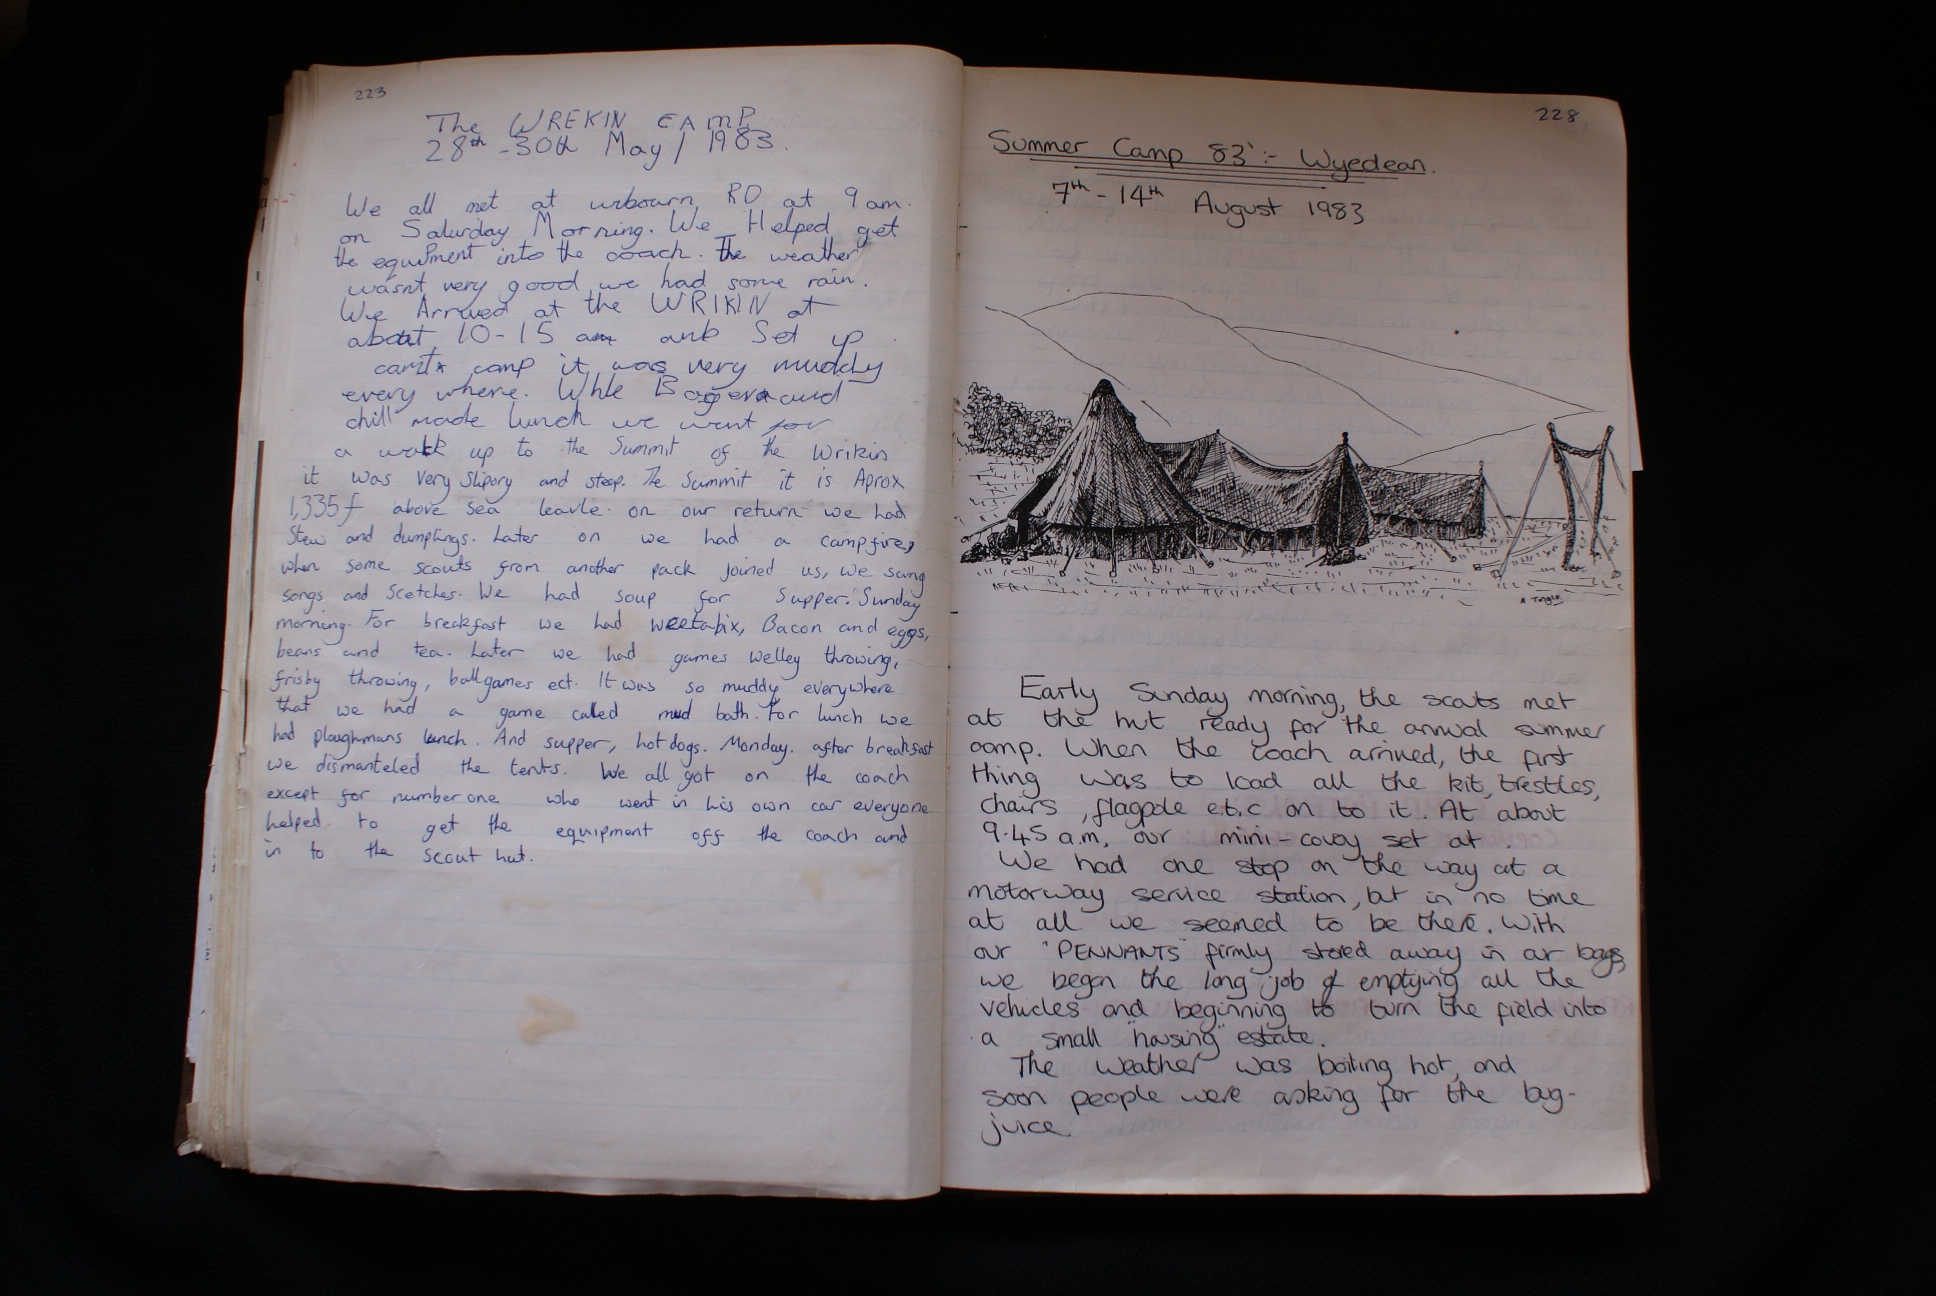 223
The WREKIN CAMP
28th -30th May / 1983.
We all met at unbourn RD at 9 am.
on Saturday Morning. We Helped get
the equipment into the coach. The weather
wasnt very good we had some rain.
We Arrived at the WRIKIN at
about 10-15 am anb Set up
camp it was very muddy
every where. While and
chill made lunch we went for
a walk up to the Summit of the Wrikin
it was very Slipory and steep. The Summit it is Aprox
1,335f above sea leavle. on our return we had
Stew and dumplings. Later on we had a campfire,
when some scouts from another pack joined us, we sang
songs and Scetches. We had soup for Supper. Sunday
morning. For breakfast we had weetabix, Bacon and eggs,
beans and tea. Later we had games Welley throwing,
frisby throwing, ballgames ect. It was so muddy everywhere
that we had a game called mud bath. For lunch we
had ploughmans lunch. And supper, hotdogs. Monday. after breakfast
we dismanteled the tents. We all got on the coach
except for number one who went in his own car everyone
helped to get the equipment off the coach and
in to the scout hut.
228
Summer Camp 83' :- Wyedean.
7th - 14th August 1983
Early Sunday morning, the scouts met
at the hut ready for the annual summer
camp. When the coach arrived, the first
thing was to load all the kit, trestles,
chairs, flagpole e.t.c on to it. At about
9.45 a.m, our mini-covoy set at.
We had one stop on the way at a
motorway service station, but in no time
at all we seemed to be there. With
our "PENNANTS" firmly stored away in our bags,
we began the long job of emptying all the
vehicles and beginning to turn the field into
a small "housing" estate.
The weather was boiling hot, and
soon people were asking for the bug-
juice